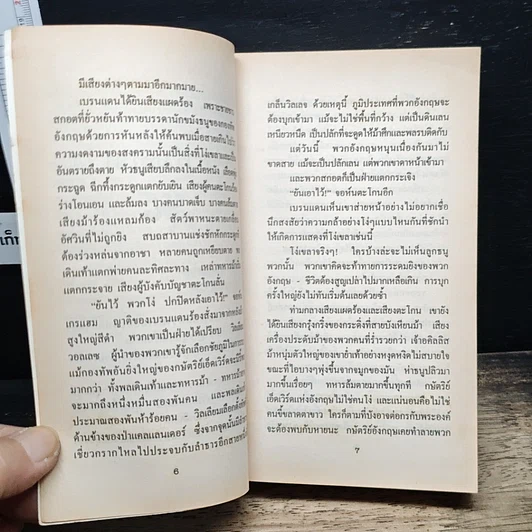 มีเสียงต่างๆตามมาอีกมากมาย...
เบรนแดนได้ยินเสียงแผดร้อง เพราะชายชาว
สกอตที่ยั่วหยันท้าทายบรรดานักขมังธนูของกองทัพ
อังกฤษด้วยการหันหลังให้ค้นพบเมื่อสายเกินไป
ความงดงามของสงครามนั้นเป็นสิ่งที่โง่เขลา
อันตรายถึงตาย หัวธนูเสียบลึกลงในเนื้อหนัง เสียง
กระฉูด ฉีกทึ้งกระดูกแตกยับเยิน เสียงผู้คนตะโกน
ร่างโอนเอน และล้มลง บางคนบาดเจ็บ บางคน
เสียงม้าร้องแหลมก้อง สัตว์พาหนะตายเกลื่อน
อัศวินที่ไม่ถูกยิง สบถสาบานแช่งชักหักกระดูก
ต้องร่วงหล่นจากอาชา หลายคนถูกเหยียบตาย
เดินเท้าแตกพ่ายคนละทิศละทาง เหล่าทหารม้า
แตกกระจาย เสียงผู้บังคับบัญชาตะโกนลั่น
“ยันไว้ พวกโง่ ปกปิดหลังเอาไว้” จอห์น
เกรแฮม ญาติของเบรนแดนร้องสั่งมาจากหลัง
สูงใหญ่สีดำ พวกเขาเป็นฝ่ายได้เปรียบ วิลเลียม
วอลเลซ ผู้นำของพวกเขารู้จักเลือกชัยภูมิในการรบ
แม้กองทัพอันยิ่งใหญ่ของกษัตริย์เอ็ดเวิร์ดจะมีรี้พล
มากกว่า ทั้งพลเดินเท้าและทหารม้า - ทหารม้า
จะมากถึงหนึ่งหมื่นสองพันคน และพลเดิน
ประมาณสองพันห้าร้อยคน - วิลเลียมเลือกตั้ง
ด้านข้างของป่าแคลแลนเดอร์ ซึ่งจากจุดนั้นมี
เชี่ยวกรากไหลไปประจบกับลำธารอีกสายหนึ่ง
6
เกลื่นวิลเลจ ด้วยเหตุนี้ ภูมิประเทศที่พวกอังกฤษจะ
ต้องบุกเข้ามา แม้จะไม่ใช่พื้นที่กว้าง แต่เป็นดินเลน
เหนียวหนืด เป็นปลักที่จะดูดให้ม้าศึกและพลรบติดกับ
แต่วันนี้ พวกอังกฤษหนุนเนื่องกันมาไม่
ขาดสาย แม้จะเป็นปลักเลน แต่พวกเขาดาหน้าเข้ามา
และพวกสกอตก็เป็นฝ่ายแตกกระเจิง
“ยันเอาไว้!” จอห์นตะโกนอีก
เบรนแดนเห็นเขาส่ายหน้าอย่างไม่อยากเชื่อ
นึกสงสัยว่าความกล้าอย่างโง่ๆแบบไหนกันที่ชักนำ
ให้เกิดการแสดงที่โง่เขลาเช่นนี้
โง่เขลาจริงๆ! ใครบ้างล่ะจะไม่เห็นลูกธนู
พวกนั้น พวกเขาคิดจะท้าทายการระดมยิงของพวก
อังกฤษ - ชีวิตต้องสูญเปล่าไปมากเหลือเกิน การบุก
ครั้งใหญ่ยังไม่ทันเริ่มต้นเลยด้วยซ้ำ
ท่ามกลางเสียงแผดร้องและเสียงตะโกน เขายัง
ได้ยินเสียงกรุ๋งกริ๋งของกระดิ่งที่สายบังเหียนม้า เสียง
เครื่องประดับม้าของพวกคนที่ร่ำรวยกว่า เจ้าอคิลลิส
ม้าหนุ่มตัวใหญ่ของเขาย่ำเท้าอย่างหงุดหงิดไม่สบายใจ
ขณะที่ไอบางๆพุ่งขึ้นจากจมูกของมัน ห่าธนูปลิวมา
มากขึ้นเรื่อยๆ ทหารล้มตายมากขึ้นทุกที กษัตริย์
เอ็ดเวิร์ดแห่งอังกฤษไม่ใช่คนโง่ และแน่นอนคือไม่ใช่
คนขี้ขลาดตาขาว ใครก็ตามที่บังอาจต่อกรกับพระองค์
จะต้องพบกับหายนะ กษัตริย์อังกฤษเคยทำลายพวก
7